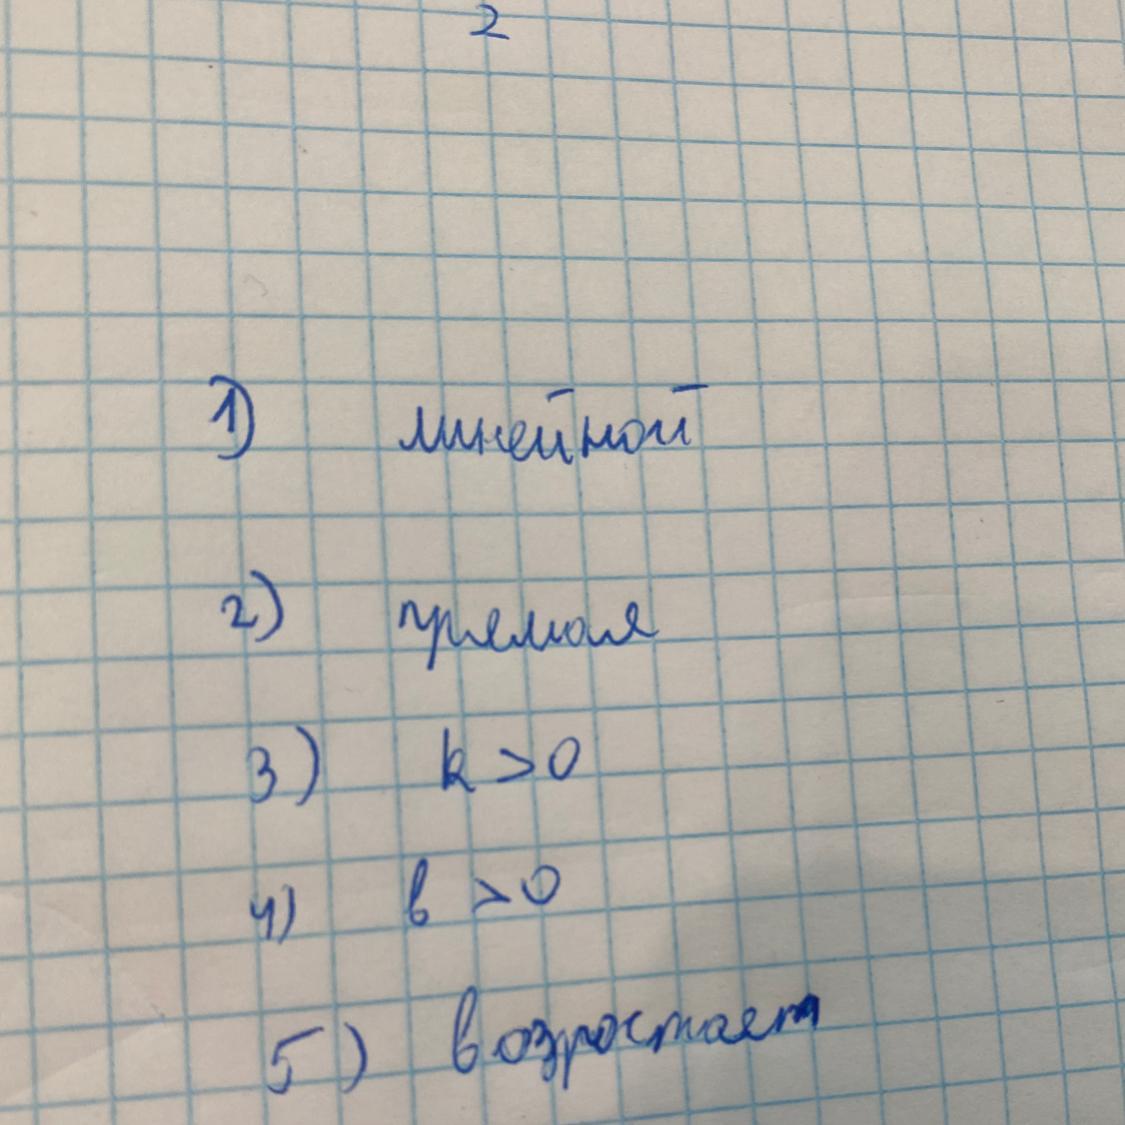 2
1) линейной
2) прямая
3) k > 0
4) b > 0
5) возростает